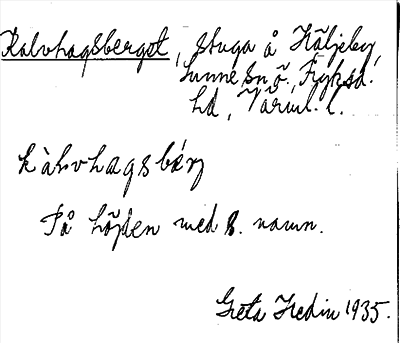 Kalvhagsberget, stuga å Häljeby,
Sunne sn ö., Fryksd.
hd, Värml. l.
kàlvhagsbérj
På höjden med s. namn.
Greta Hedin 1935.